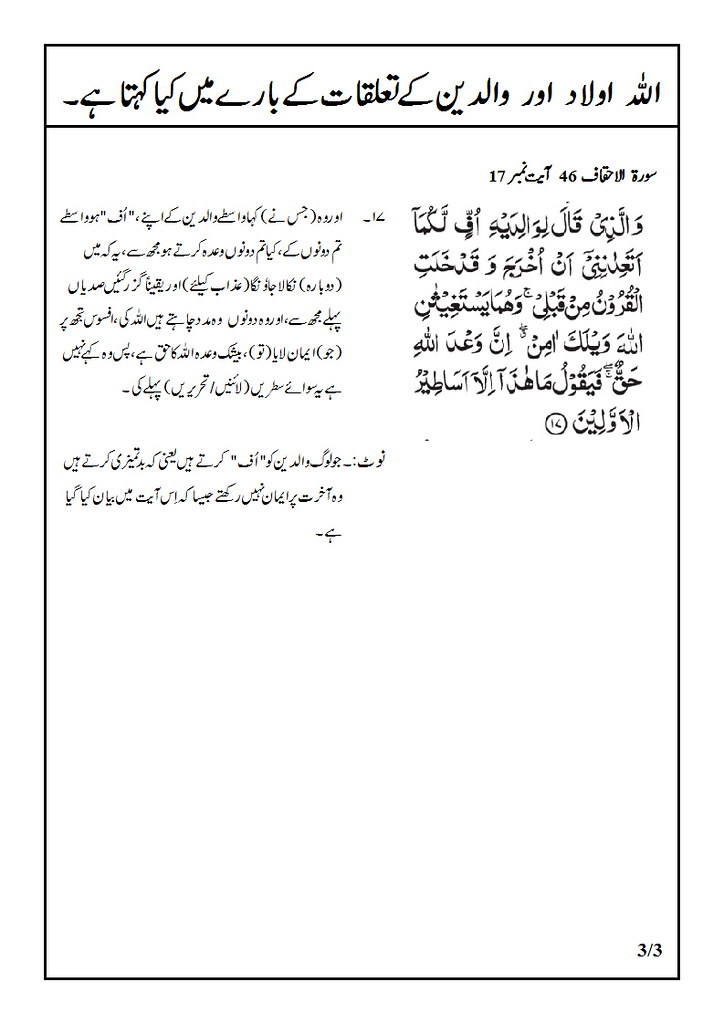 اللہ اولاد اور والدین کے تعلقات کے بارے میں کیا کہتا ہے۔
سورۃ الاحقاف 46 آیت نمبر 17
وَالَّذِیْ قَالَ لِوَالِدَیْهِ اُفٍّ لَّكُمَاۤ
اَتَعِدٰنِنِیْۤ اَنْ اُخْرَجَ وَ قَدْ خَلَتِ
الْقُرُوْنُ مِنْ قَبْلِیْ ۚ وَهُمَا یَسْتَغِیْثٰنِ
اللّٰهَ وَیْلَكَ اٰمِنْ ۖۗ اِنَّ وَعْدَ اللّٰهِ
حَقٌّ ۖۚ فَیَقُوْلُ مَا هٰذَاۤ اِلَّاۤ اَسَاطِیْرُ
الْاَوَّلِیْنَ ﴿۱۷﴾
۱۷۔ اور وہ (جس نے) کہا واسطے والدین کے اپنے، "اُف" ہو واسطے
تم دونوں کے، کیا تم دونوں وعدہ کرتے ہو مجھ سے، یہ کہ میں
(دوبارہ) نکالا جاؤنگا (عذاب کیلئے) اور یقیناً گزر گئیں صدیاں
پہلے مجھ سے، اور وہ دونوں وہ مدد چاہتے ہیں اللہ کی، افسوس تجھ پر
(جو) ایمان لایا (تو)، بیشک وعدہ اللہ کا حق ہے، پس وہ کہے نہیں
ہے یہ سوائے سطریں (لائنیں/تحریریں) پہلے کی ۔
نوٹ:۔ جو لوگ والدین کو "اُف" کرتے ہیں یعنی کہ بدتمیزی کرتے ہیں
وہ آخرت پر ایمان نہیں رکھتے جیسا کہ اِس آیت میں بیان کیا گیا
ہے ۔
3/3